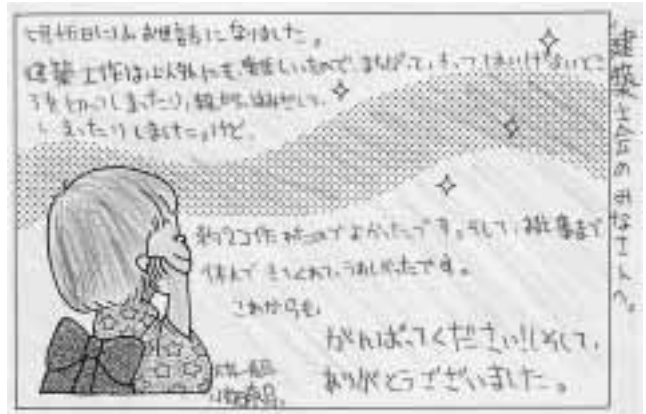 建築士会のみなさんへ。
日にはお世話になりました。
建築工作は以外にも、難しいもので、まちがって、きってはいけないとこ
ろをきってしまったり、
しまったりしましたけど、
作れたのでよかったです。そして、仕事まで
休んできてくれて、うれしかったです。
これからも、
がんばってください!!そして、
ありがとうございました。